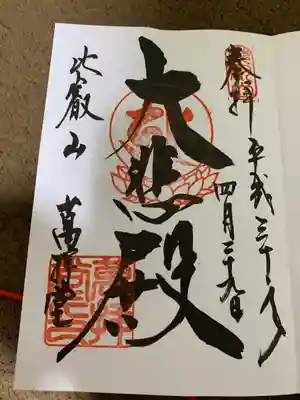 奉拝 平成三十年
四月二十九日
大悲殿
比叡山 萬拝堂